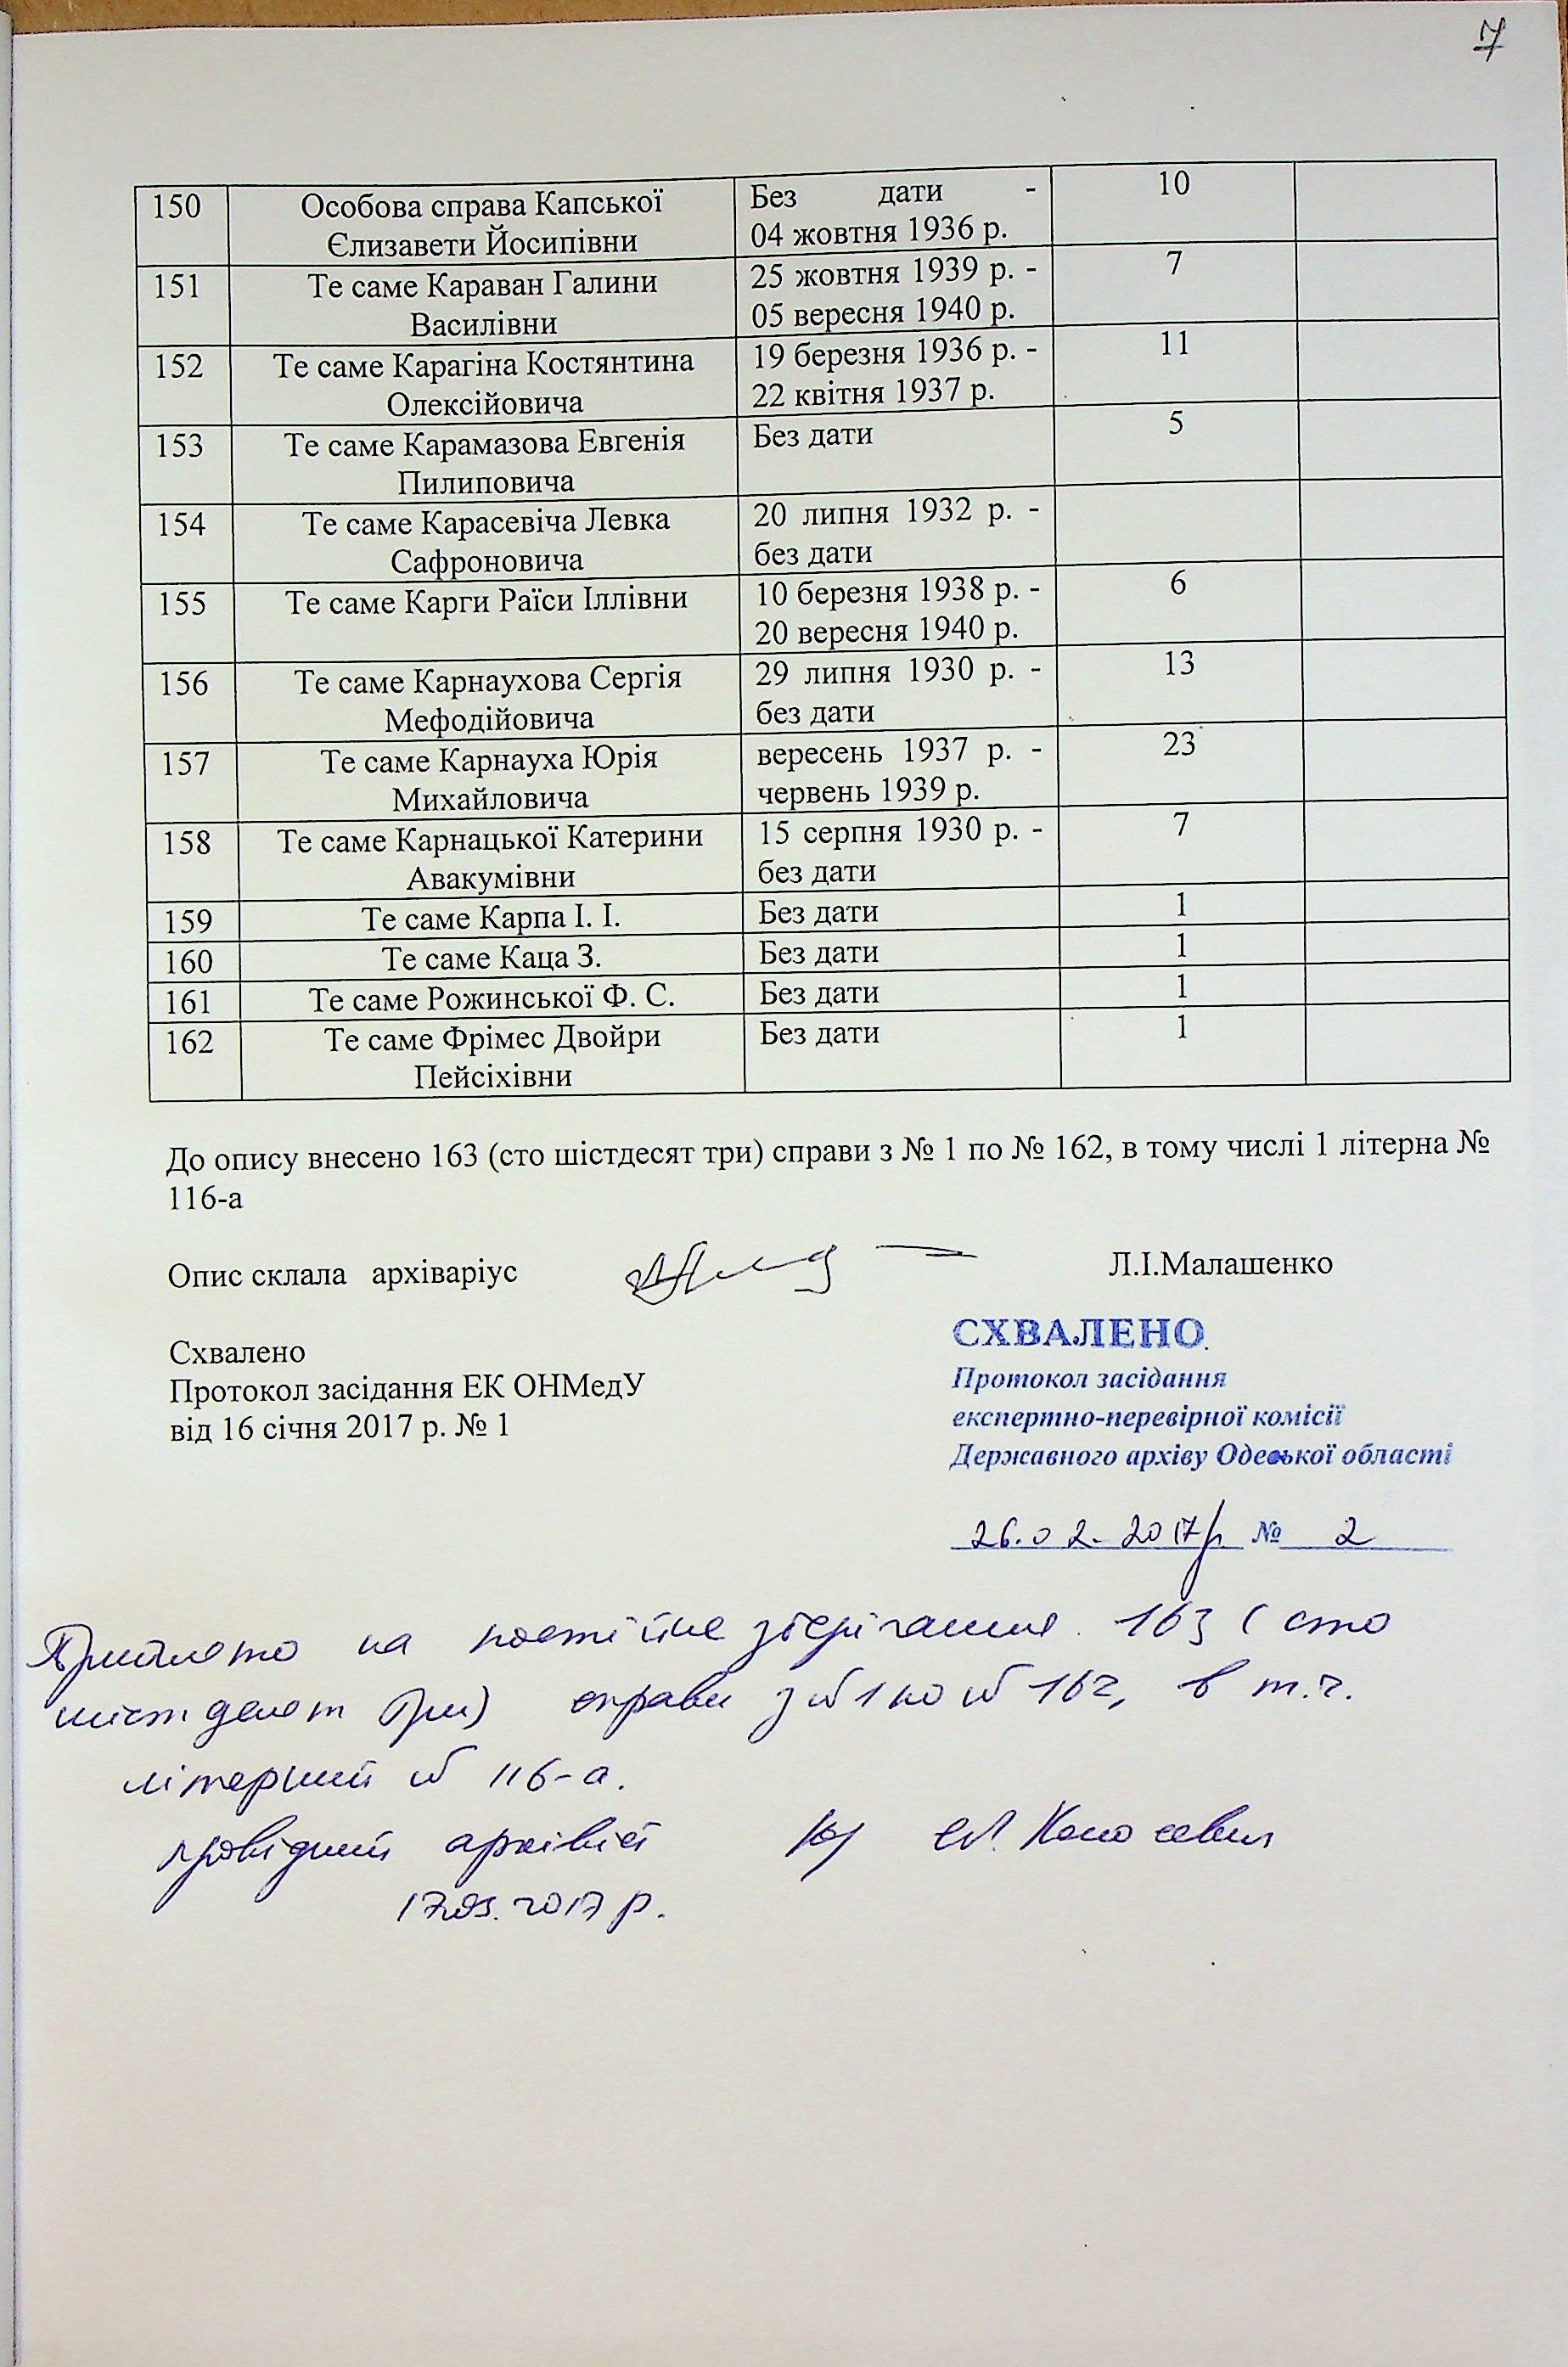 7
150 Особова справа Капської Без дати - 10
Єлизавети Йосипівни 04 жовтня 1936 р.
151 Те саме Караван Галини 25 жовтня 1939 р. - 7
Василівни 05 вересня 1940 р.
152 Те саме Карагіна Костянтина 19 березня 1936 р. - 11
Олексійовича 22 квітня 1937 р.
153 Те саме Карамазова Евгенія Без дати 5
Пилиповича
154 Те саме Карасевіча Левка 20 липня 1932 р. -
Сафроновича без дати
155 Те саме Карги Раїси Іллівни 10 березня 1938 р. - 6
20 вересня 1940 р.
156 Те саме Карнаухова Сергія 29 липня 1930 р. - 13
Мефодійовича без дати
157 Те саме Карнауха Юрія вересень 1937 р. - 23
Михайловича червень 1939 р.
158 Те саме Карнацької Катерини 15 серпня 1930 р. - 7
Авакумівни без дати
159 Те саме Карпа І. І. Без дати 1
160 Те саме Каца З. Без дати 1
161 Те саме Рожинської Ф. С. Без дати 1
162 Те саме Фрімес Двойри Без дати 1
Пейсіхівни
До опису внесено 163 (сто шістдесят три) справи з № 1 по № 162, в тому числі 1 літерна №
116-а
Опис склала архіваріус Л.І.Малашенко
Схвалено
Протокол засідання ЕК ОНМедУ
від 16 січня 2017 р. № 1
СХВАЛЕНО
Протокол засідання
експертно-перевірної комісії
Державного архіву Одеської області
26.02.2017р № 2
Прийнято на постійне зберігання 163 (сто
шістдесят три) справи з № 1 по № 162, в т.ч.
літерний № 116-а.
провідний архівіст
17.03.2017 р.